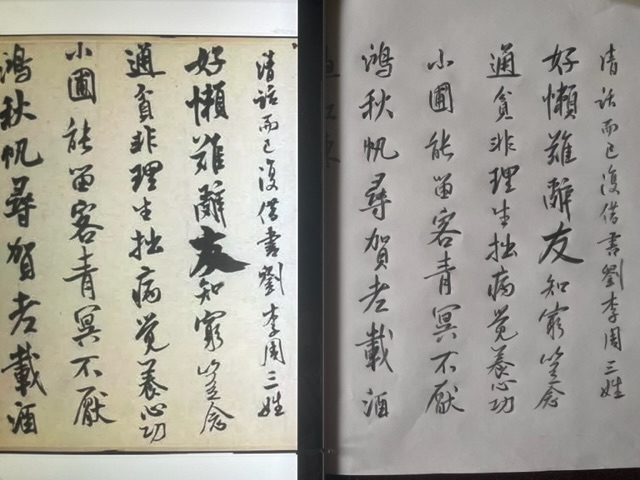 清話而已復借書劉李周三姓
好懶難辭友知窮豈念
通貧非理生拙病覺養心功
小圃能留客青冥不厭
鴻秋帆尋賀老載酒
清話而已復借書劉李周三姓
好懶難辭友知窮豈念
通貧非理生拙病覺養心功
小圃能留客青冥不厭
鴻秋帆尋賀老載酒